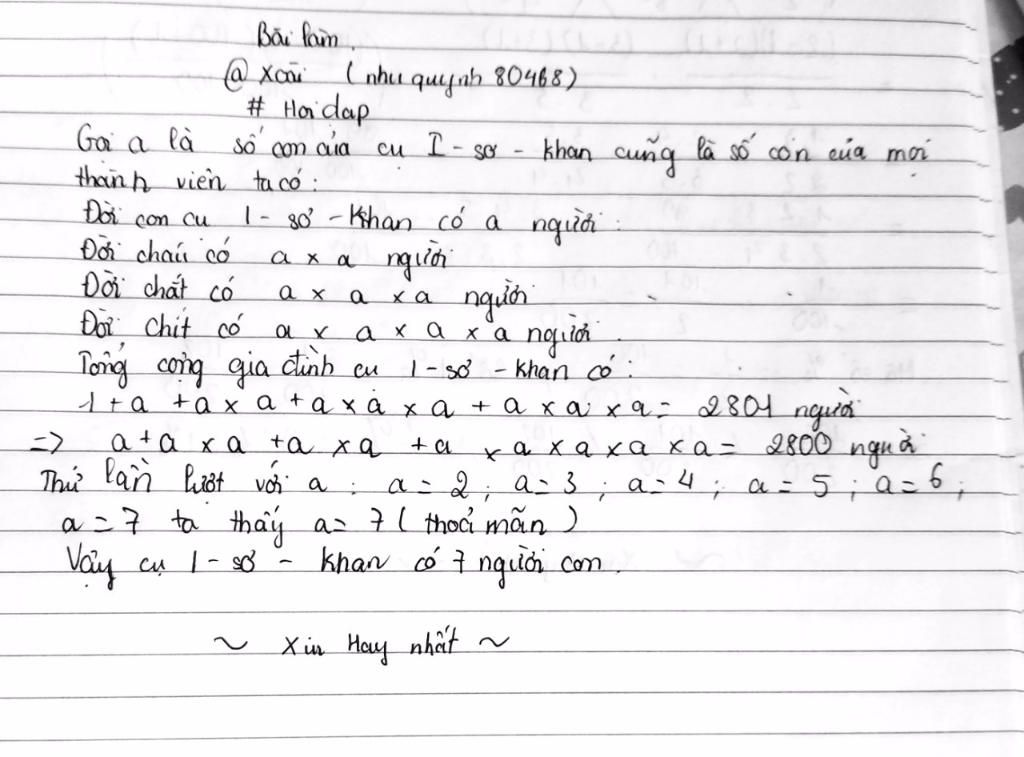 Bài làm.
@ xoài (nhuquynh80468)
# Hoidap
Gọi a là số con của cụ I - sơ - khan cũng là số con của mọi
thành viên ta có:
Đời con cụ I - sơ - khan có a người:
Đời cháu có a x a người
Đời chắt có a x a x a người
Đời chít có a x a x a x a người.
Tổng cộng gia đình cụ I - sơ - khan có:
1 + a + a x a + a x a x a + a x a x a = 2801 người
=> a + a x a + a x a + a x a x a x a x a = 2800 người
Thử lần lượt với a : a = 2 ; a = 3 ; a = 4 ; a = 5 ; a = 6 ;
a = 7 ta thấy a = 7 ( thoả mãn )
Vậy cụ I - sơ - khan có 7 người con.
~ Xin Hay nhất ~